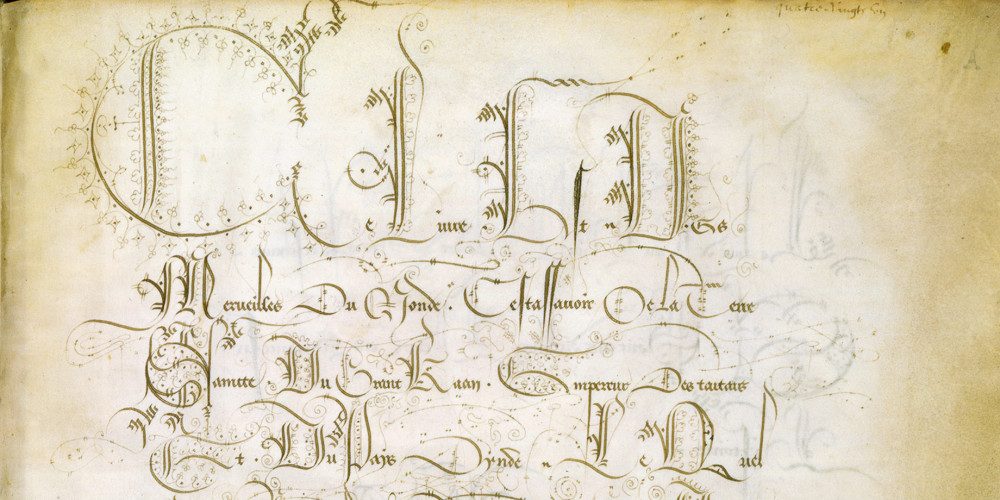 quatre-vingts un
Ce Liure Est Des
Merueilles Du Monde. Cestassauoir De La Terre
Saincte Du Grant Kaan. Empereur Des tartars
Et. Du Pays Dynde Le Quel